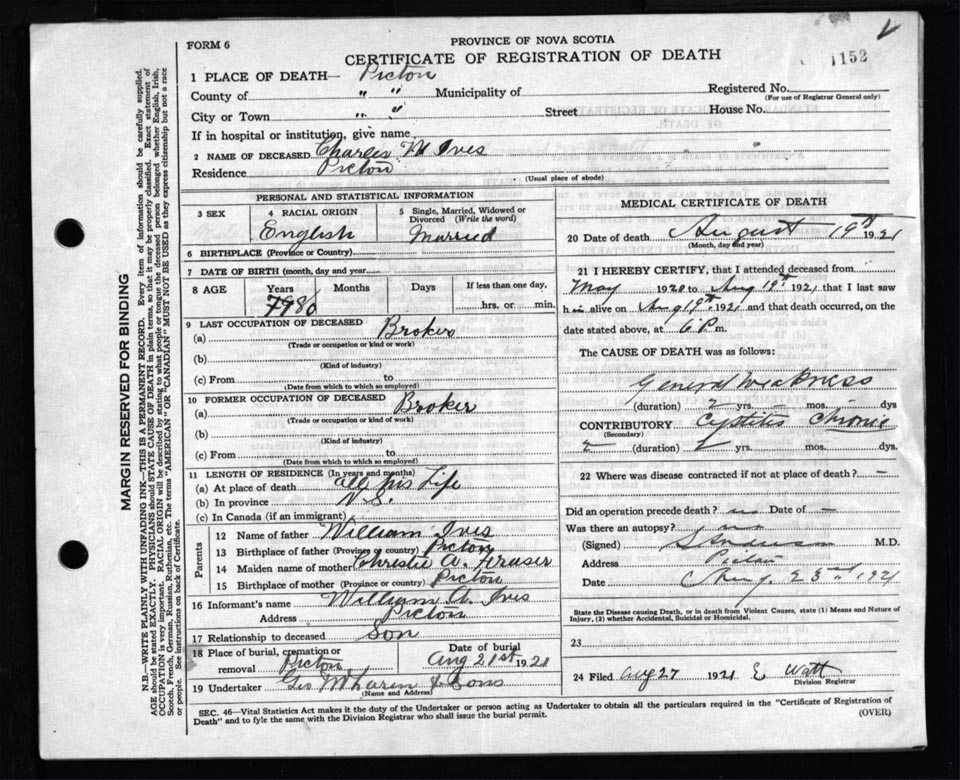 FORM 6
PROVINCE OF NOVA SCOTIA
CERTIFICATE OF REGISTRATION OF DEATH
1152
1 PLACE OF DEATH— Picton
County of " " Municipality of Registered No.
(For use of Registrar General only)
City or Town " Street House No.
If in hospital or institution, give name
2 NAME OF DECEASED Charles M Ives
Residence Picton
(Usual place of abode)
PERSONAL AND STATISTICAL INFORMATION
3 SEX
4 RACIAL ORIGIN
English
5 Single, Married, Widowed or Divorced (Write the word)
Married
6 BIRTHPLACE (Province or Country)
7 DATE OF BIRTH (month, day and year)
8 AGE Years Months Days If less than one day,
80 hrs. or min.
9 LAST OCCUPATION OF DECEASED
(a) Broker
(Trade or occupation or kind or work)
(b)
(Kind of industry)
(c) From to
(Date from which to which so employed)
10 FORMER OCCUPATION OF DECEASED
(a) Broker
(Trade or occupation or kind or work)
(b)
(Kind of industry)
(c) From to
(Date from which to which so employed)
11 LENGTH OF RESIDENCE (In years and months)
(a) At place of death all his Life
(b) In province N.S.
(c) In Canada (if an immigrant)
Parents
12 Name of father William Ives
13 Birthplace of father (Province or country) Picton
14 Maiden name of mother Christie A. Fraser
15 Birthplace of mother (Province or country) Picton
16 Informant's name William Ives
Address Picton
17 Relationship to deceased Son
18 Place of burial, cremation or removal Picton
Date of burial
Aug 21st 1921
19 Undertaker Geo & Sons
(Name and Address)
MEDICAL CERTIFICATE OF DEATH
20 Date of death August 19th 1921
(Month, day and year)
21 I HEREBY CERTIFY, that I attended deceased from
May 1920 to Aug 19th 1921 that I last saw
h alive on Aug 19th 1921 and that death occurred, on
date stated above, at 6 P. m.
The CAUSE OF DEATH was as follows:
General Weakness
(duration) 2 yrs. – mos. – dys
CONTRIBUTORY Cystitis Chronic
(Secondary)
2 (duration) yrs. mos. dys.
22 Where was disease contracted if not at place of death? –
Did an operation precede death? no Date of –
Was there an autopsy? no
(Signed) M.D.
Address
Date Aug. 23rd 1921
State the Disease causing Death, or in death from Violent Causes, state (1) Means and Nature of
Injury, (2) whether Accidental, Suicidal or Homicidal.
23
24 Filed Aug 27 1921 E Watt
Division Registrar
SEC. 46—Vital Statistics Act makes it the duty of the Undertaker or person acting as Undertaker to obtain all the particulars required in the "Certificate of Registration of
Death" and to fyle the same with the Division Registrar who shall issue the burial permit.
(OVER)
MARGIN RESERVED FOR BINDING
N.B.—WRITE PLAINLY WITH UNFADING INK—THIS IS A PERMANENT RECORD. Every item of information should be carefully supplied.
AGE should be stated EXACTLY. PHYSICIANS should STATE CAUSE OF DEATH in plain terms, so that it may be properly classified. Exact statement of
OCCUPATION is very important. RACIAL ORIGIN will be described by stating to what people or tongue the deceased person belonged whether English, Irish,
Scotch, French, German, Russian, Ruthenian, etc. The terms "AMERICAN" OR "CANADIAN" MUST NOT BE USED as they express citizenship but not a race
or people. See instructions on back of Certificate.